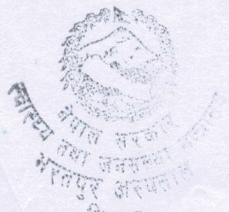 नेपाल सरकार
स्वास्थ्य तथा जनसंख्या मन्त्रालय
भरतपुर अस्पताल